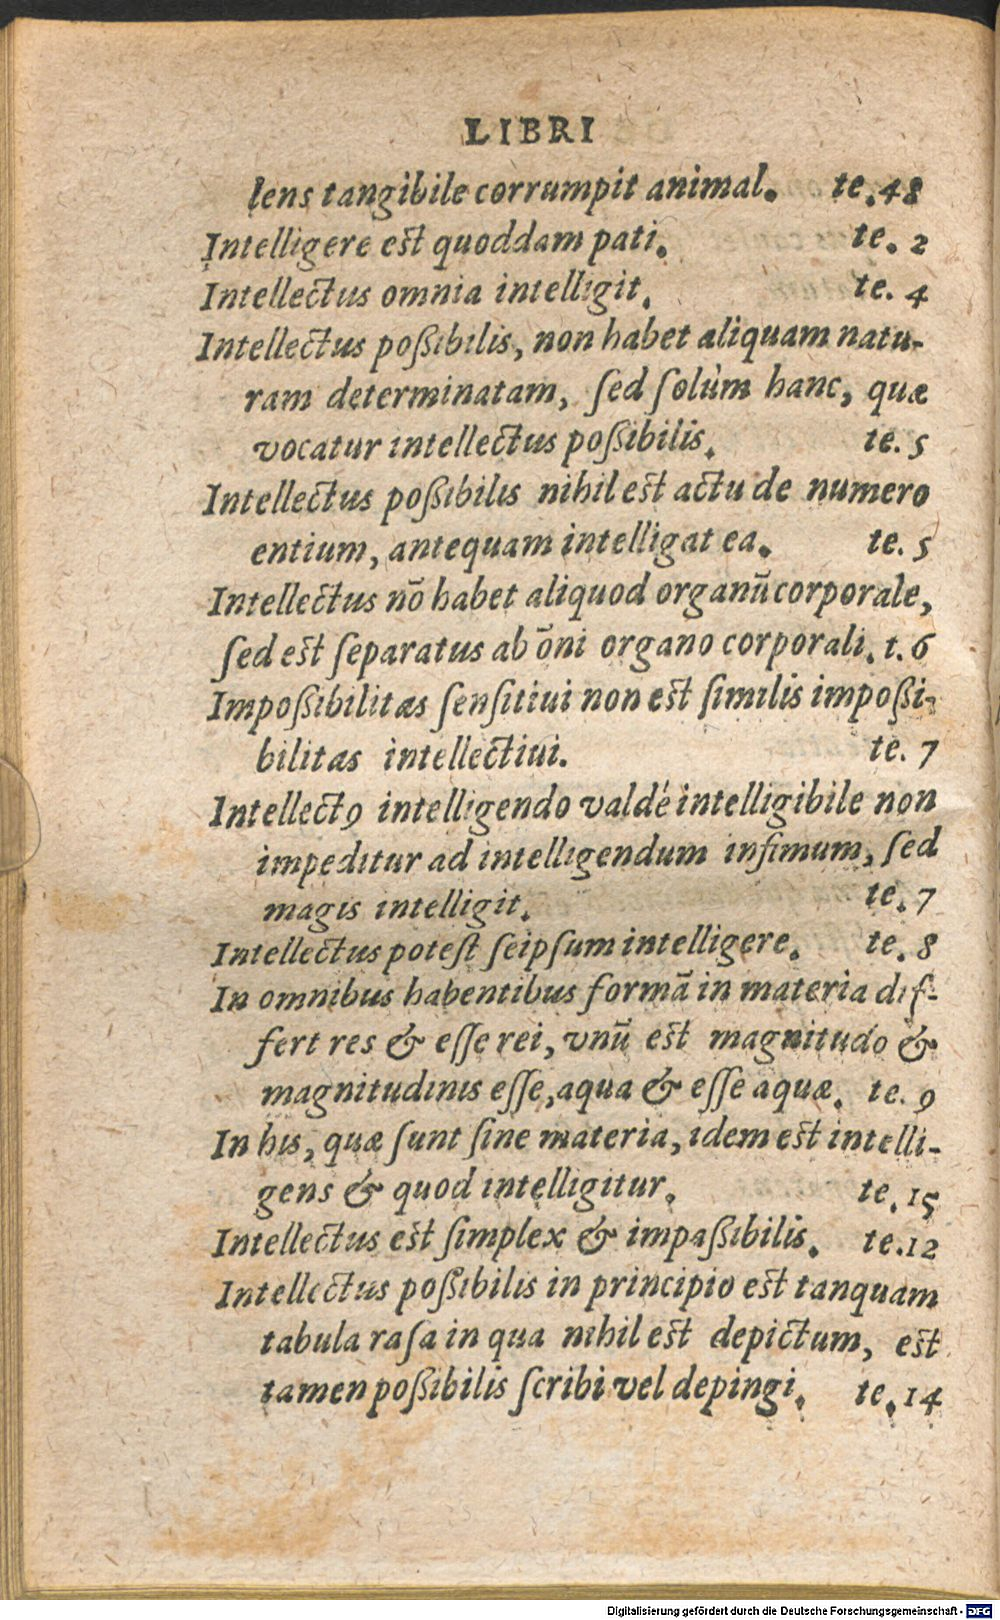 LIBRI
lens tangibile corrumpit animal. te. 48
Intelligere est quoddam pati. te. 2
Intellectus omnia intelligit. te. 4
Intellectus poßibilis, non habet aliquam natu-
ram determinatam, ſed ſolùm hanc, quæ
vocatur intellectus poßibilis. te. 5
Intellectus poßibilis nihil est actu de numero
entium, antequam intelligat ea. te. 5
Intellectus nõ habet aliquod organũ corporale,
ſed est ſeparatus ab õni organo corporali. t. 6
Impoßibilitas ſenſitiui non est ſimilis impoßi-
bilitas intellectiui. te. 7
Intellectꝰ intelligendo valdé intelligibile non
impeditur ad intelligendum infimum, ſed
magis intelligit. te. 7
Intellectus poteſt ſeipſum intelligere. te. 8
In omnibus habentibus formã in materia dif-
fert res & eſſe rei, vnũ est magnitudo &
magnitudinis eſſe, aqua & eſſe aquæ. te. 9
In his, quæ ſunt ſine materia, idem est intelli-
gens & quod intelligitur. te. 15
Intellectus est ſimplex & impaßibilis. te. 12
Intellectus poßibilis in principio est tanquam
tabula raſa in qua nihil est depictum, est
tamen poßibilis ſcribi vel depingi. te. 14
Digitalisierung gefördert durch die Deutsche Forschungsgemeinschaft - DFG